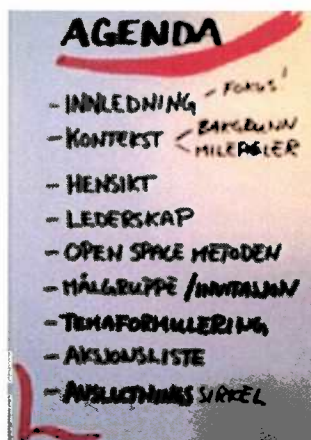 AGENDA
- INNLEDNING - FOKUS!
- KONTEKST < BAKGRUNN
< MILEPÆLER
- HENSIKT
- LEDERSKAP
- OPEN SPACE METODEN
- MÅLGRUPPE / INVITASJON
- TEMAFORMULERING
- AKSJONSLISTE
- AVSLUTNINGSSIRKEL